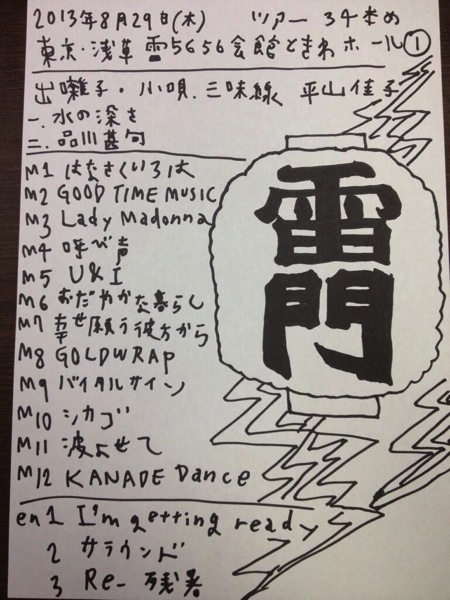 2013年8月29日(木) ツアー34本め
東京・浅草 雷5656会館ときわホール①
出囃子・小唄.三味線 平山佳子
一.水の深さ
二.品川甚句
M1 はなさくいろは
M2 GOOD TIME MUSIC
M3 Lady Madonna
M4 呼び声
M5 U&I
M6 おだやかな暮らし
M7 幸せ願う彼方から
M8 GOLDWRAP
M9 バイタルサイン
M10 シカゴ
M11 波よせて
M12 KANADE Dance
en1 I'm getting ready
2 サラウンド
3 Re-残暑
雷門